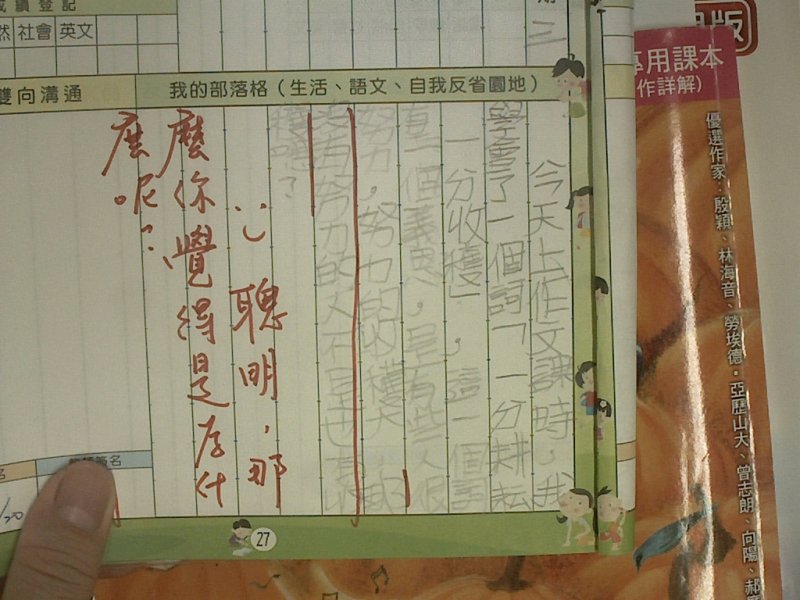 成績登記
社會 英文
三
雙向溝通
我的部落格（生活、語文、自我反省園地）
今天上作文課時，我
學會了一個詞「一分耕耘
一分收穫」，這一個詞
一個義思，是有些人很
努力，努力的收穫大，
沒有努力的人不是也有收
穫嗎？
:) 聰明，那
麼你覺得是為什
麼呢？
27
版
專用課本
作詳解）
優選作家：殷穎、林海音、勞埃德・亞歷山大、曾志朗、向陽、郝